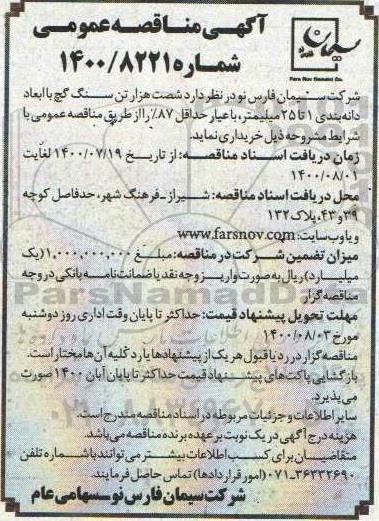 آگهی مناقصه عمومی
شماره ۱۴۰۰/۸۲۲۱
سیمان
Pars Nov Cement Co.
شرکت سیمان فارس نو در نظر دارد شصت هزار تن سنگ گچ با ابعاد
دانه‌بندی ۱ تا ۲۵ میلیمتر، با عیار حداقل ۸۷٪ را از طریق مناقصه عمومی با
شرایط مشروحه ذیل خریداری نماید.
زمان دریافت اسناد مناقصه: از تاریخ ۱۴۰۰/۰۷/۱۹ لغایت
۱۴۰۰/۰۸/۰۱
محل دریافت اسناد مناقصه: شیراز - فرهنگ شهر، حدفاصل کوچه
۳۹ و ۴۳، پلاک ۱۳۲
و یا وب سایت: www.farsnov.com
میزان تضمین شرکت در مناقصه: مبلغ ۱,۰۰۰,۰۰۰,۰۰۰ (یک
میلیارد) ریال به صورت واریز وجه نقد یا ضمانت‌نامه بانکی در وجه
مناقصه گزار
مهلت تحویل پیشنهاد قیمت: حداکثر تا پایان وقت اداری روز دوشنبه
مورخ ۱۴۰۰/۰۸/۰۳
مناقصه‌گزار در رد یا قبول هر یک از پیشنهادها یا رد کلیه آن‌ها مختار است.
بازگشایی پاکت‌های پیشنهاد قیمت حداکثر تا پایان آبان ۱۴۰۰ صورت
می‌پذیرد.
سایر اطلاعات و جزئیات مربوطه در اسناد مناقصه مندرج است.
هزینه درج آگهی در یک نوبت بر عهده برنده مناقصه می‌باشد.
متقاضیان برای کسب اطلاعات بیشتر می‌توانند با شماره تلفن
۰۷۱-۳۶۳۳۲۶۹۰ (امور قراردادها) تماس حاصل فرمایند.
شرکت سیمان فارس نو سهامی عام
ParsNamadData